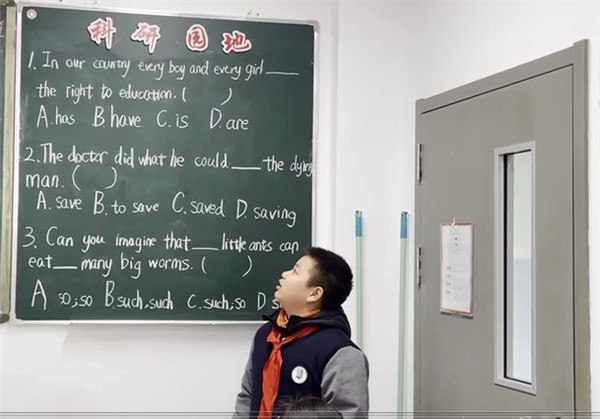 科研园地
1. In our country every boy and every girl ____
the right to education. (    )
A. has B. have C. is D. are
2. The doctor did what he could ____ the dying
man. (    )
A. save B. to save C. saved D. saving
3. Can you imagine that ___ little ants can
eat ___ many big worms. (    )
A so, so B. such, such C. such, so D